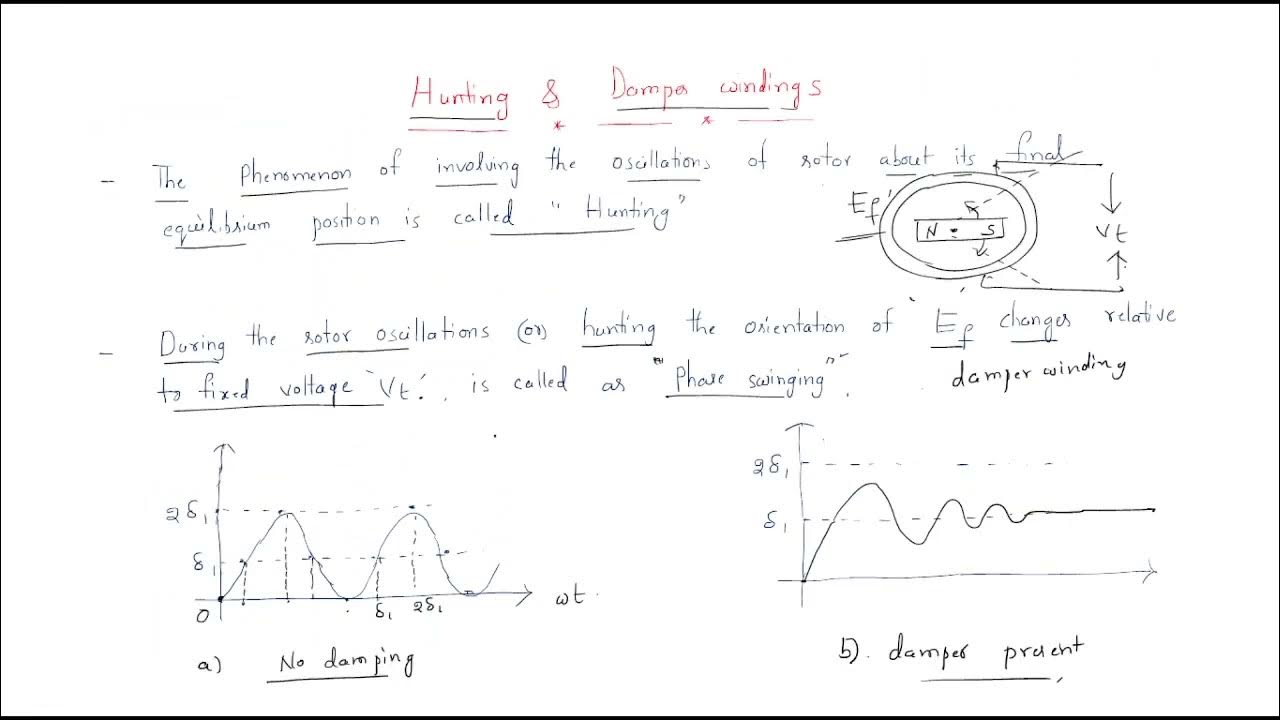 Hunting & Damper windings
- The Phenomenon of involving the oscillations of rotor about its final
equilibrium position is called "Hunting"
Ef
N S
Vt
- During the rotor oscillations (or) hunting the orientation of 'Ef' changes relative
to fixed voltage 'Vt'. is called as "Phase swinging".
damper winding
2δ₁
δ₁
0
δ₁ 2δ₁
ωt
a) No damping
2δ₁
δ₁
b). damper present